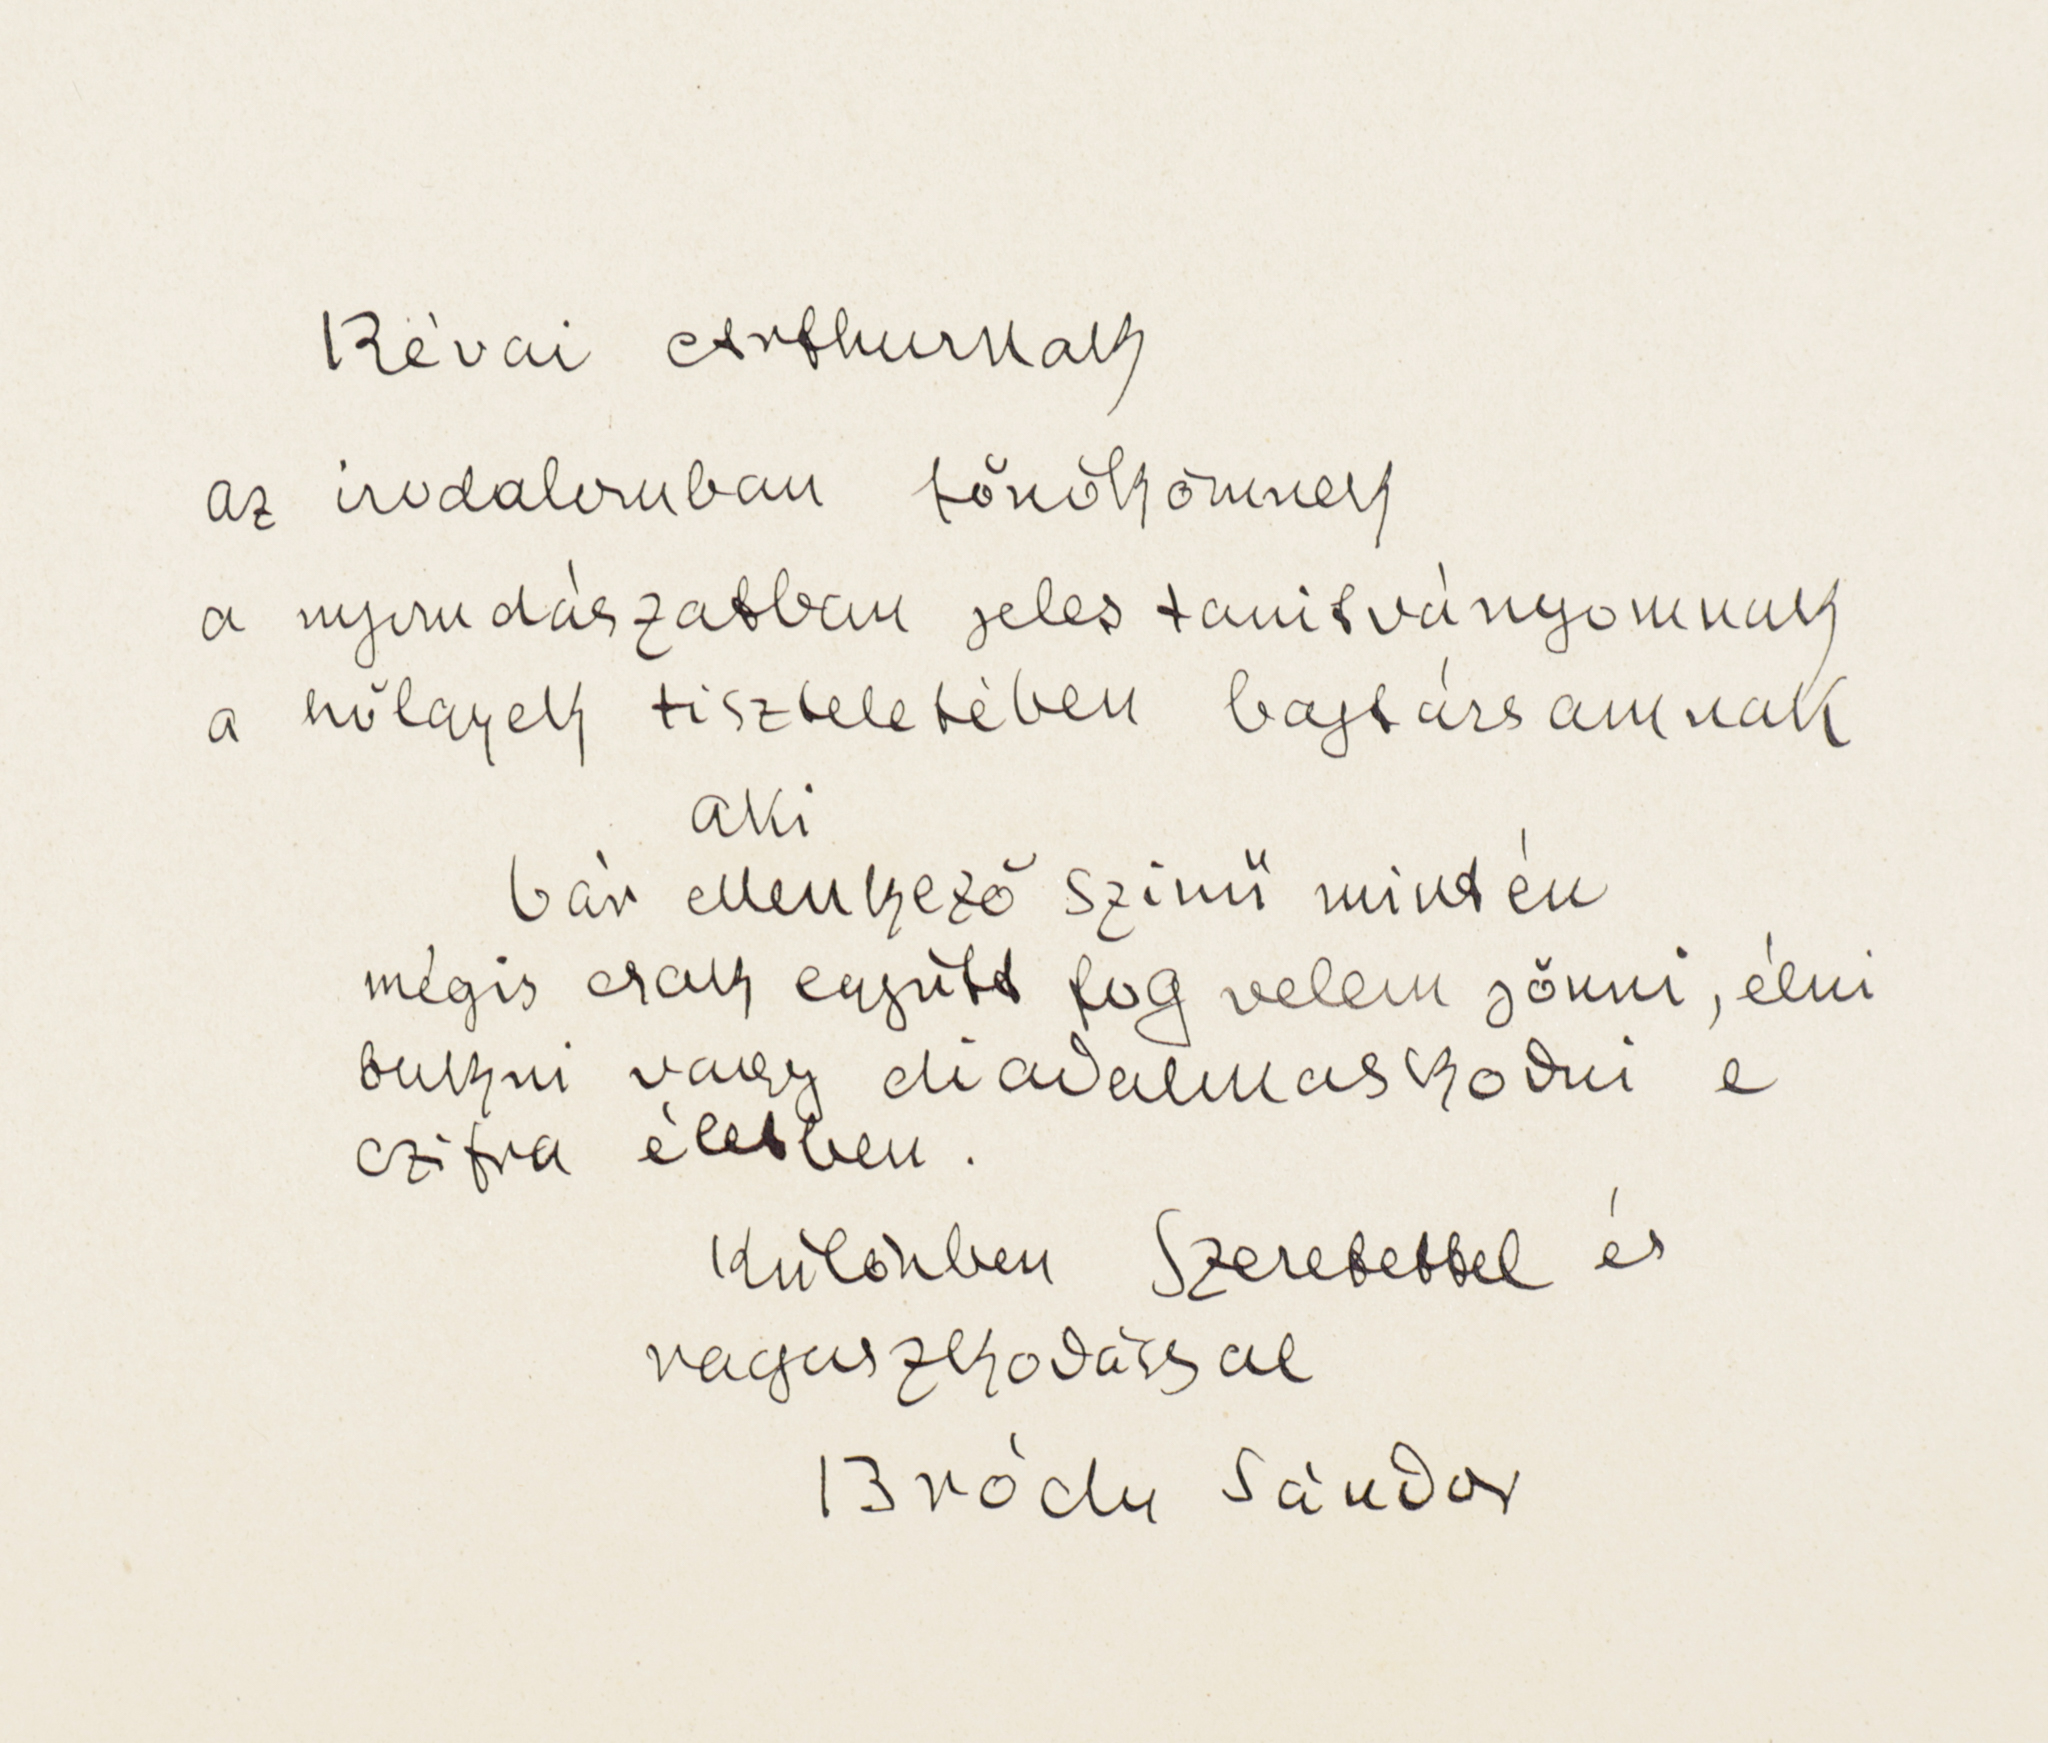 Révai Arthurnak
az irodalomban főnökömnek
a nyomdászatban jeles tanitványomnak
a hölgyek tiszteletében bajtársamnak
aki
bár ellenkező szinü mint én
mégis csak együtt fog velem jönni, élni
bukni vagy diadalmaskodni e
czifra életben.
Különben Szeretettel és
ragaszkodással
Bródy Sándor